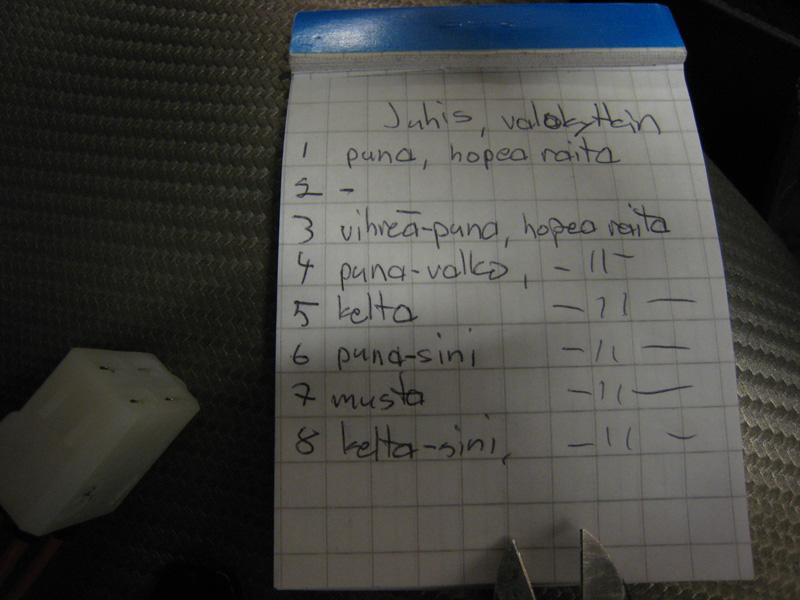 Juhis, valokytkin
1 puna, hopea raita
2 -
3 vihreä-puna, hopea raita
4 puna-valko, - 11 -
5 kelta - 11 -
6 puna-sini - 11 -
7 musta - 11 -
8 kelta-sini, - 11 -